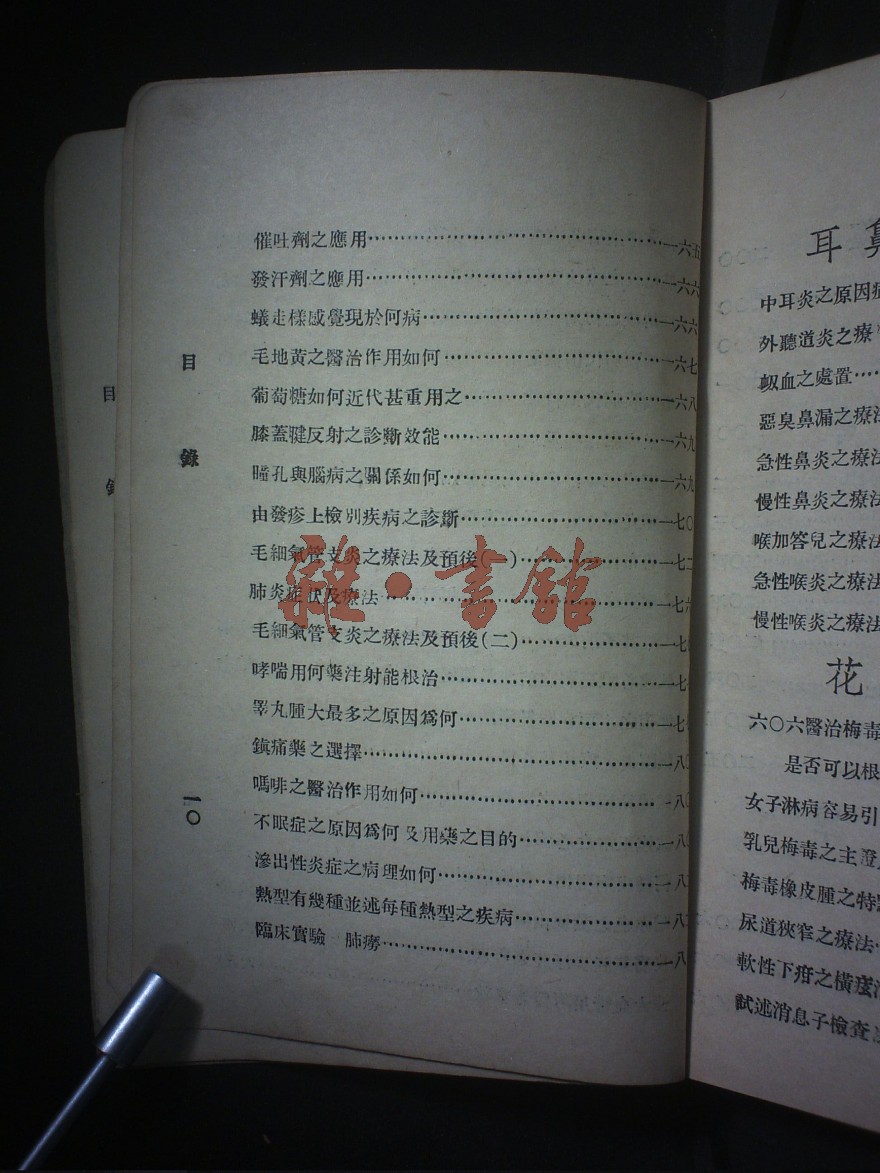 目錄
一〇
催吐劑之應用……一六五
發汗劑之應用……一六六
蟻走樣感覺現於何病……一六六
毛地黃之醫治作用如何……一六七
葡萄糖如何近代甚重用之……一六八
膝蓋腱反射之診斷效能……一六九
瞳孔與腦病之關係如何……一六九
由發疹上檢別疾病之診斷……一七〇
毛細氣管支炎之療法及預後(一)……一七二
肺炎症狀及療法……一七六
毛細氣管支炎之療法及預後(二)……一七
哮喘用何藥注射能根治……一七
睪丸腫大最多之原因爲何……一七
鎮痛藥之選擇……一八〇
嗎啡之醫治作用如何……一八〇
不眠症之原因爲何及用藥之目的……一八
滲出性炎症之病理如何……一八
熱型有幾種並述每種熱型之疾病……一八
臨床實驗 肺癆……一八
雜·書館
耳鼻
中耳炎之原因
外聽道炎之療
衂血之處置……
惡臭鼻漏之療法
急性鼻炎之療法
慢性鼻炎之療法
喉加答兒之療法
急性喉炎之療法
慢性喉炎之療法
花
六〇六醫治梅毒
是否可以根
女子淋病容易引
乳兒梅毒之主
梅毒橡皮腫之特
尿道狹窄之療法
軟性下疳之橫
試述消息子檢查
目